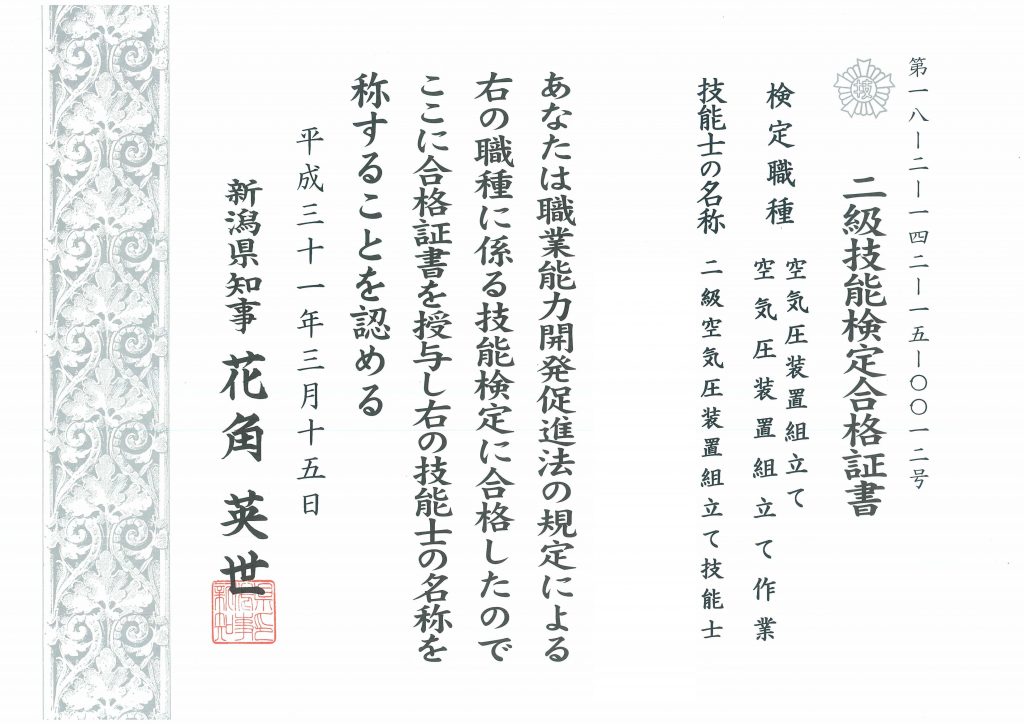 第一八ー二ー一四二ー一五ー〇〇一二号
二級技能検定合格証書
検定職種 空気圧装置組立て
空気圧装置組立て作業
技能士の名称 二級空気圧装置組立て技能士
あなたは職業能力開発促進法の規定による
右の職種に係る技能検定に合格したので
ここに合格証書を授与し右の技能士の名称を
称することを認める
平成三十一年三月十五日
新潟県知事 花角英世